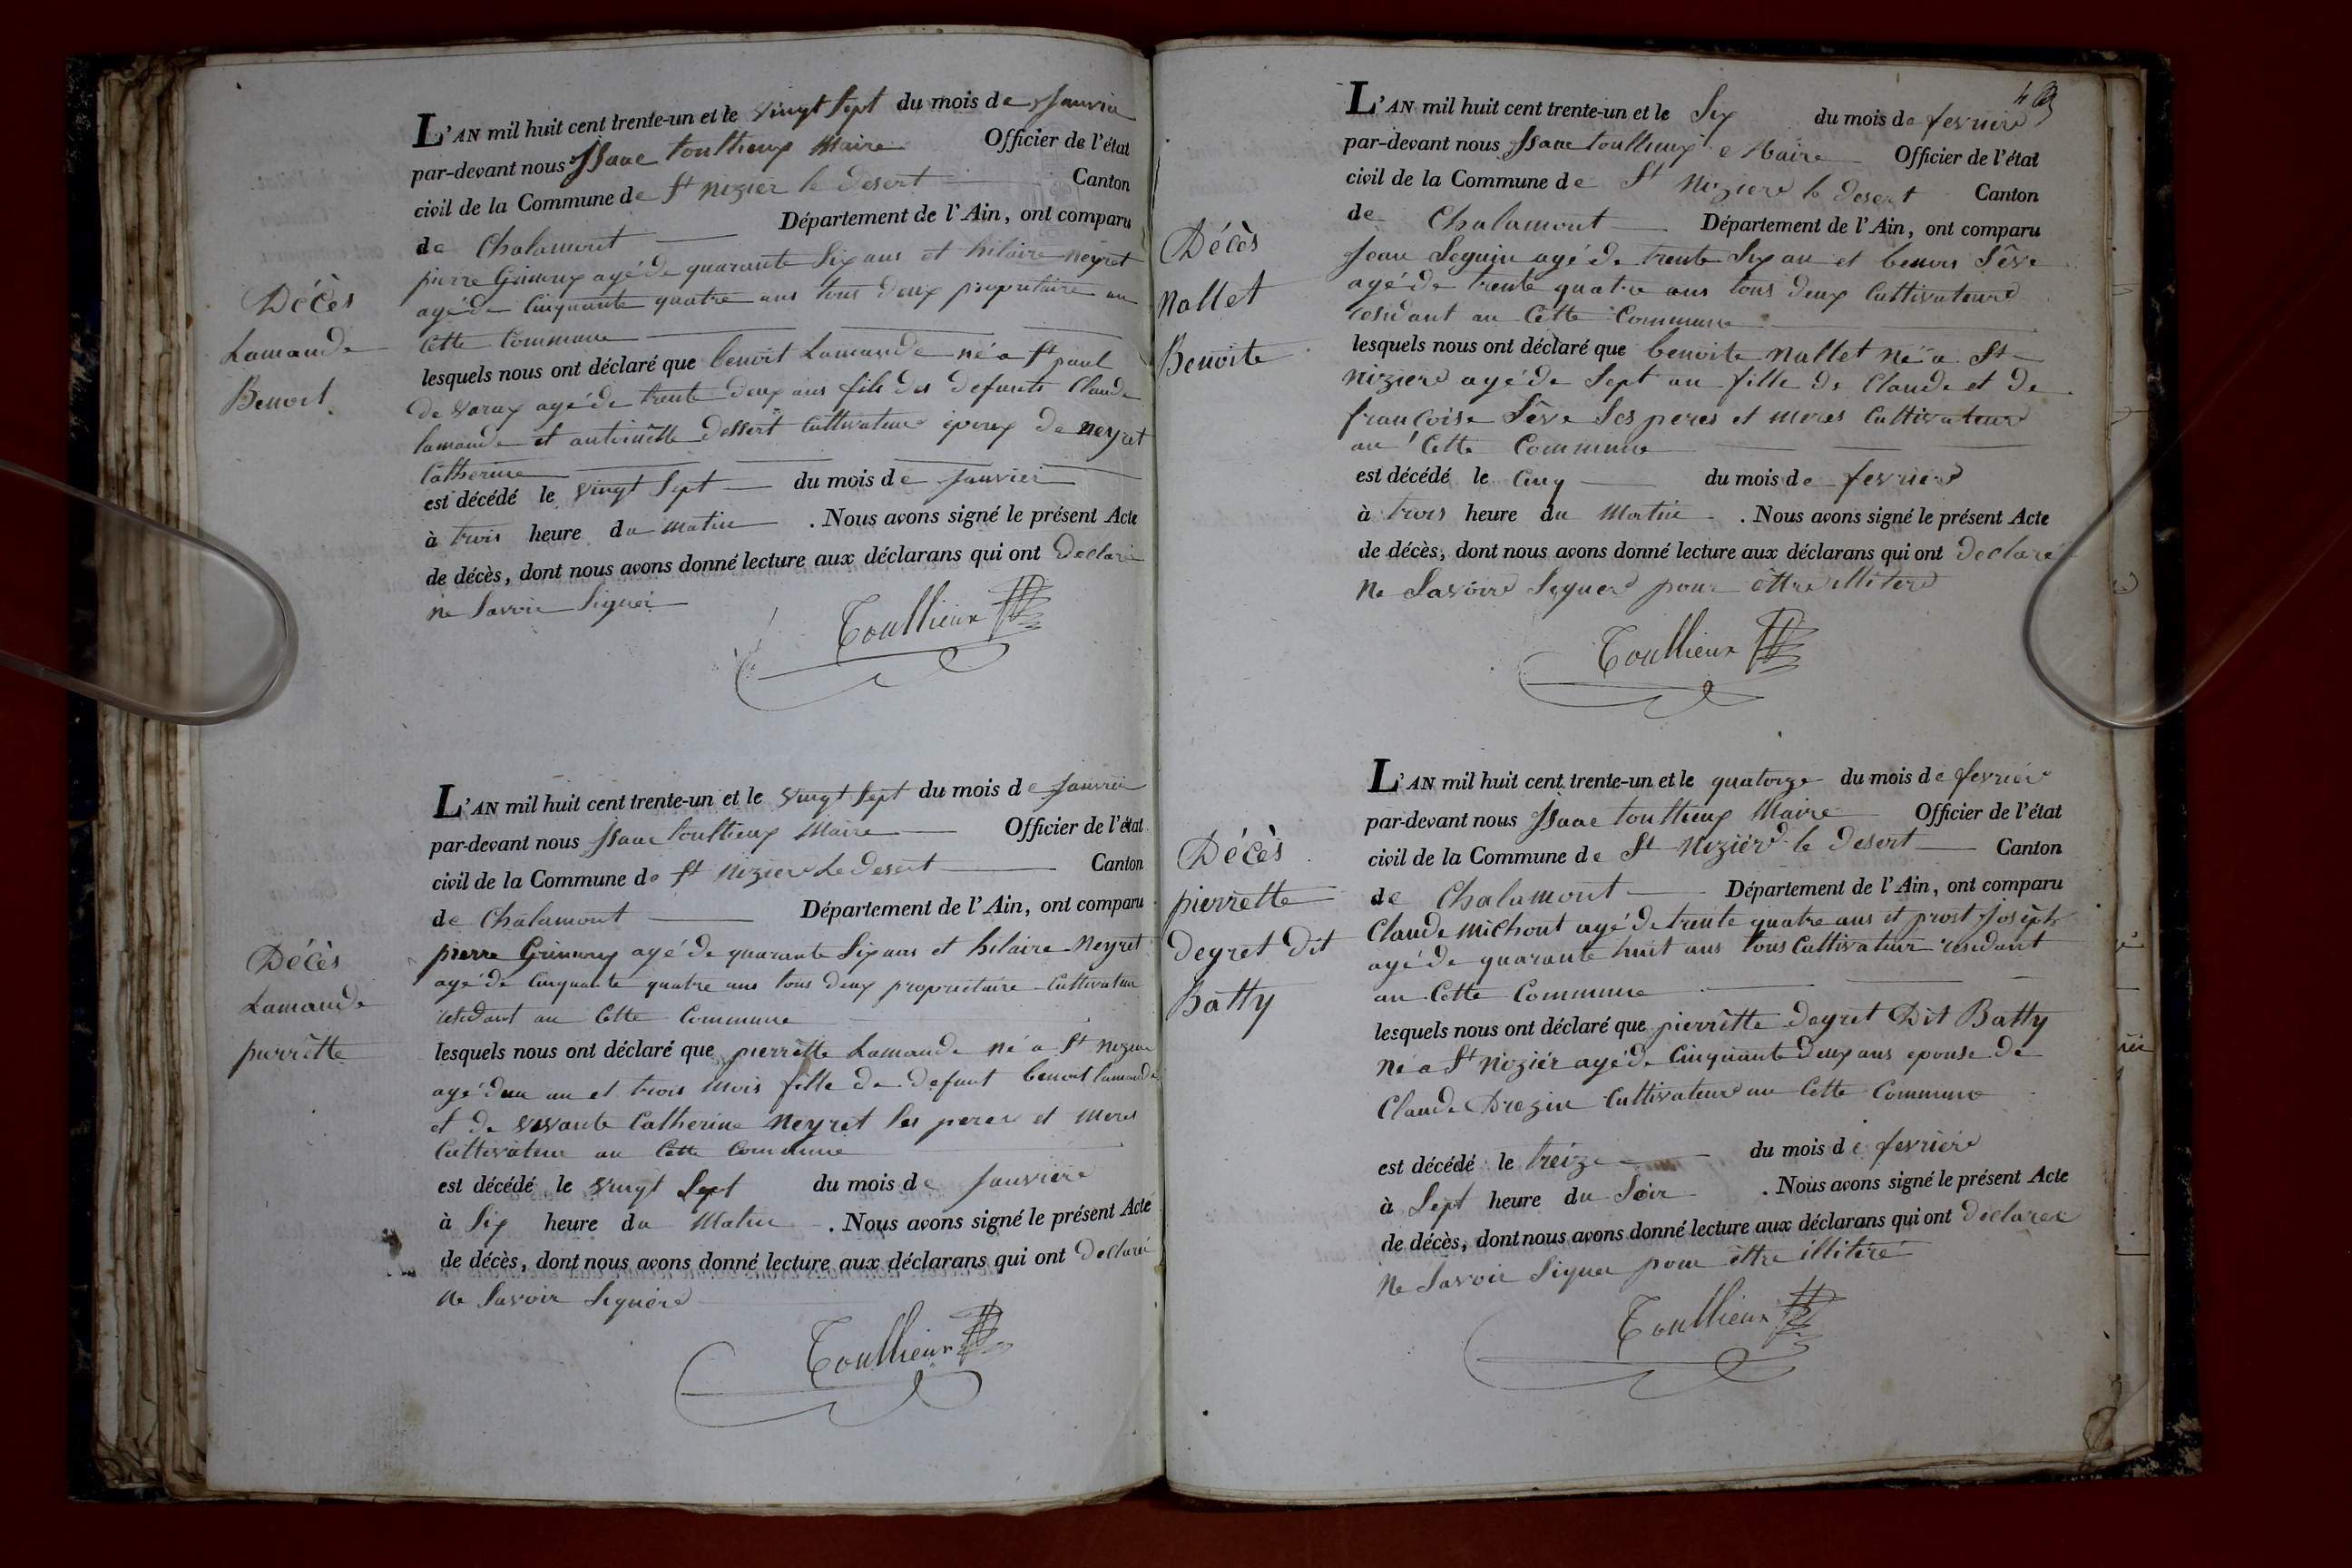 L'AN mil huit cent trente-un et le vingt Sept du mois de Janvier
par-devant nous Isaac toullieux Maire Officier de l'état
civil de la Commune de St nizier le desert Canton
de Chalamont Département de l'Ain, ont comparu
pierre Grimoux agé de quarante Six ans et hilaire neyret
agé de Cinquante quatre ans tous deux propritaire au
Cette Commune
Décès
Lamande
Benoit
lesquels nous ont déclaré que benoit Lamande né a St paul
de varax agé de trente deux ans fils des defunts Claude
lamande et antoinette dessert Cultivateur epoux de neyret
Catherine
est décédé le vingt Sept du mois de Janvier
à trois heure du matin . Nous avons signé le présent Acte
de décès, dont nous avons donné lecture aux déclarans qui ont declaré
ne Savoir Signer
Toullieux
L'AN mil huit cent trente-un et le vingt Sept du mois de Janvier
par-devant nous Isaac toullieux Maire Officier de l'état
civil de la Commune de St nizier Le desert Canton
de Chalamont Département de l'Ain, ont comparu
pierre Grimoux agé de quarante Six ans et hilaire Neyret
agé de Cinquante quatre ans tous deux propriétaire Cultivateur
residant au Cette Commune
Décès
Lamande
pierrette
lesquels nous ont déclaré que pierrette Lamande né a St nizier
agé dun an et trois mois fille de defunt benoit lamande
et de vivante Catherine neyret Ses peres et meres
Cultivateur au Cette Commune
est décédé le vingt Sept du mois de Janviere
à Six heure du Matin . Nous avons signé le présent Acte
de décès, dont nous avons donné lecture aux déclarans qui ont declaré
ne Savoir Signere
Toullieux
L'AN mil huit cent trente-un et le Six du mois de fevriere
par-devant nous Isaac toullieux Maire Officier de l'état
civil de la Commune de St Niziere le desert Canton
de Chalamont Département de l'Ain, ont comparu
Jean Seguin agé de trente Six an et benoit Sêve
agé de trente quatre ans tous deux Cultivateure
residant au Cette Commune
Décès
Nallet
Benoite
lesquels nous ont déclaré que benoite Nallet né a St
niziere agé de Sept an fille de Claude et de
françoise Sêve Ses peres et meres Cultivateure
au Cette Commune
est décédé le Cinq du mois de fevriere
à trois heure du Matin . Nous avons signé le présent Acte
de décès, dont nous avons donné lecture aux déclarans qui ont declaré
Ne Savoire Signere pour êttre illitere
Toullieux
L'AN mil huit cent trente-un et le quatorze du mois de fevrier
par-devant nous Isaac toullieux Maire Officier de l'état
civil de la Commune de St Niziere le desert Canton
de Chalamont Département de l'Ain, ont comparu
Claude michout agé de trente quatre ans et prost Joseph
agé de quarante huit ans tous Cultivateur residant
au Cette Commune
Décès
pierrette
degret Dit
Batty
lesquels nous ont déclaré que pierrette degret Dit Batty
né a St nizier agé de Cinquante deux ans epouse de
Claude Drezin Cultivateur au Cette Commune
est décédé le treize du mois de fevriere
à Sept heure du Soir . Nous avons signé le présent Acte
de décès, dont nous avons donné lecture aux déclarans qui ont declaree
Ne Savoir Signer pour êttre illiteré
Toullieux